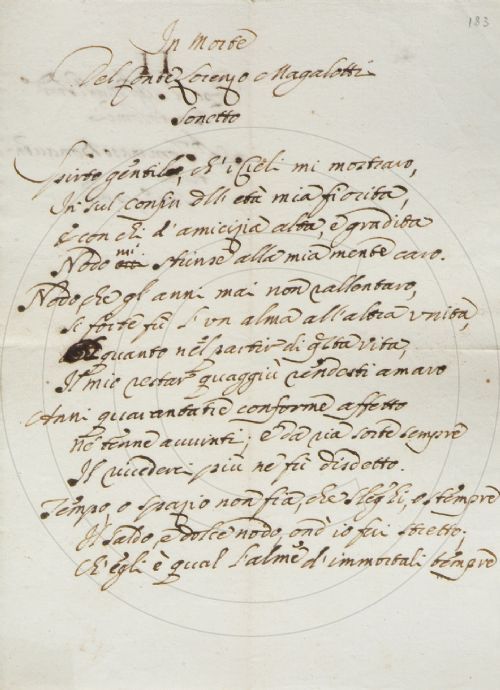 183
In Morte
Del Conte Lorenzo Magalotti
Sonetto
Spirto gentile, ch' i Cieli mi mostraro,
In sul confin dell' età mia fiorita,
E con chi d'amicizia alta e gradita
mi
Nodo strinse alla mia mente caro.
Nodo, che gl' anni mai non rallentaro,
Si forte fù l' un alma all' altra unita,
quanto nel partir di q.sta vita,
Il mio restar quaggiù rendesti amaro
Anni quaranta tre conforme affetto
ne tenne avvinti; e da ria sorte sempre
Il vicederci più ne fù disdetto.
Tempo, o spazio non fia, che sleghi, o stempre
Il saldo, e dolce nodo, ond' io fui stretto,
Ch' egli è qual l' alme d' immortali tempre